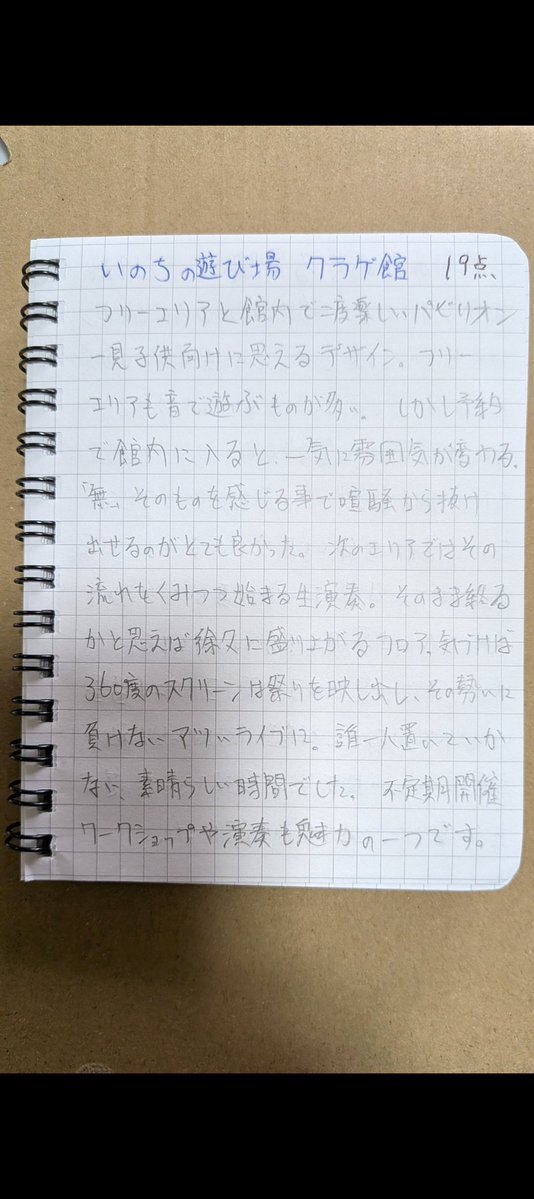 いのちの遊び場 クラゲ館 19点
フリーエリアと館内で二度楽しいパビリオン
一見子供向けに思えるデザイン。フリー
エリアも音で遊ぶものが多い。しかし予約
で館内に入ると、一気に雰囲気が変わる。
「無」そのものを感じる事で喧騒から抜け
出せるのがとても良かった。次のエリアではその
流れをくみつつ始まる生演奏。そのまま終る
かと思えば徐々に盛り上がるフロア、気づけば
360度のスクリーンは祭りを映し出し、その勢いに
負けないアツいライブに。誰一人置いていか
ない、素晴らしい時間でした。不定期開催
ワークショップや演奏も魅力の一つです。